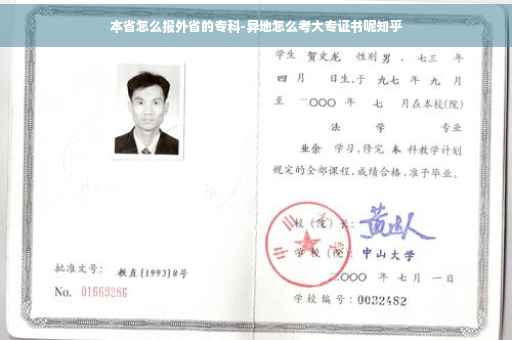 本省怎么报外省的专科-异地怎么考大专证书呢知乎
学生 贺文龙 性别 男 、七三 年
四 月 日生,于 九七 年 九 月
至 二〇〇〇 年 七 月在本校(院)
法 学 专业
业余 学习,修完 本 科教学计划
规定的全部课程,成绩合格,准予毕业。
校(院)长:
学校(院): 中山大学
二〇〇〇 年 七 月 一 日
批准文号: 教直[1993]8号
No. 01669286
学校编号: 0032482